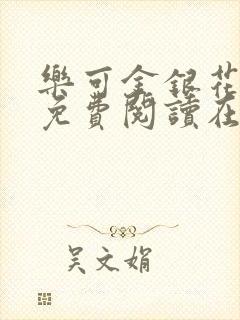 樂可金銀花
免費閱讀在
吴文娟